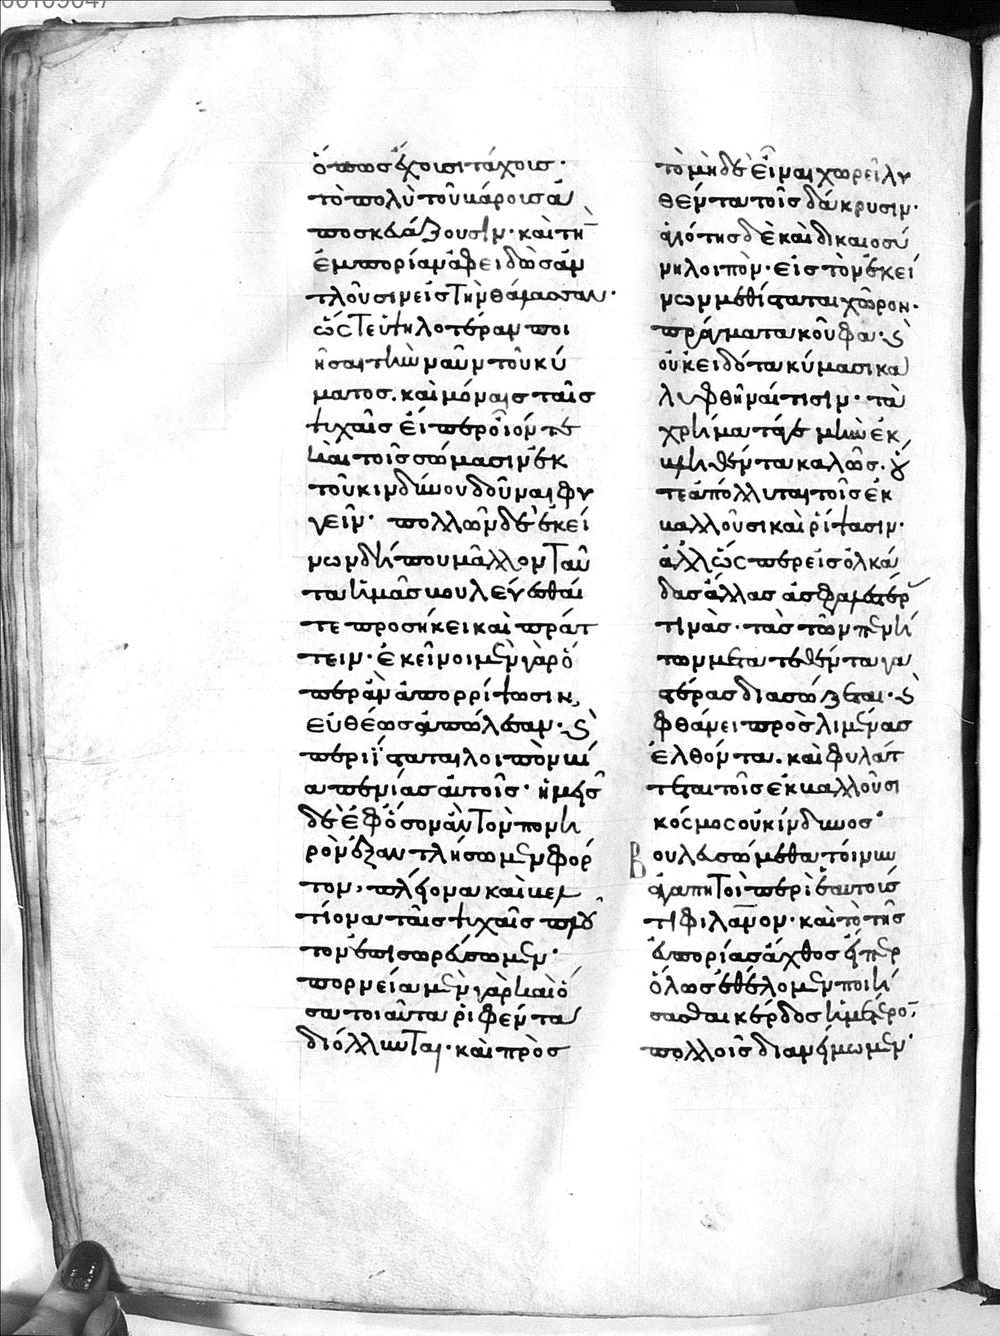 ὅπως ἔχοισι τάχοις·
τὸ πολὺ τοῦ κάρους ἀ
ποσκευάζουσιν· καὶ τὴν
ἐμπορίαν ἀφειδῶς ἀν
τλοῦσιν εἰς τὴν θάλασσαν·
ὥστε ὑψηλοτέραν ποι
ῆσαι τὴν ναῦν τοῦ κύ
ματος. καὶ μόναις ταῖς
ψυχαῖς εἴπερ οἷόν τε
καὶ τοῖς σώμασιν ἐκ
τοῦ κινδύνου δοῦναι φυ
γεῖν· πολλῶν δὲ ἐκεί
νων δήπου μᾶλλον ταῦ
τα ἡμᾶς βουλεύεσθαί
τε προσήκει καὶ πράτ
τειν· ἐκεῖνοι μὲν γὰρ ὅ
περ ἂν ἀπορρίψωσιν,
εὐθέως ἀπώλεσαν· καὶ
περιίσταται λοιπὸν βί
α πενίας αὐτοῖς· ἡμεῖς
δὲ ἐφ' ὅσον ἂν τὸν πονη
ρὸν ἐξαντλήσωμεν φόρ
τον, πλέονα καὶ βελ
τίονα ταῖς ψυχαῖς πλοῦ
τον ἐπισωρεύσωμεν·
πορνεία μὲν γὰρ καὶ ὅ
σα τοιαῦτα ῥιφέντα
διόλλυνται· καὶ πρὸς
τὸ μηδὲ εἶναι χωρεῖ λυ
θέντα τοῖς δάκρυσιν·
ἁγιότης δὲ καὶ δικαιοσύ
νη λοιπὸν· εἰς τὸν ἐκεί
νων μεθίσταται χῶρον·
πράγματα κοῦφα· καὶ
οὐκ εἰδότα κύμασι κα
λυφθῆναί τισιν· τὰ
χρήματα γε μὴν ἐκ
βληθέντα καλῶς· οὔ
τε ἀπόλλυται τοῖς ἐκ
βαλλοῦσι καὶ ῥίψασιν·
ἀλλ' ὥσπερ εἰς ὁλκά
δας ἄλλας ἀσφαλεστέρας
τινὰς· τὰς τῶν πενή
των μετατεθέντα γα
στέρας διασώζεται· καὶ
φθάνει πρὸς λιμένας
ἐλθόντα. καὶ φυλάτ
τεται τοῖς ἐκβαλλοῦσι
κόσμος οὐ κίνδυνος·
Βουλευσώμεθα τοίνυν
ἀγαπητοὶ περὶ ἑαυτοῖς
τὶ φιλάνον· καὶ τὸ τῆς
εὐπορίας ἄχθος εἴπερ
ὅλως ἐθέλομεν ποιή
σασθαι κέρδος ἡμέτερον,
πολλοῖς διανείμωμεν·